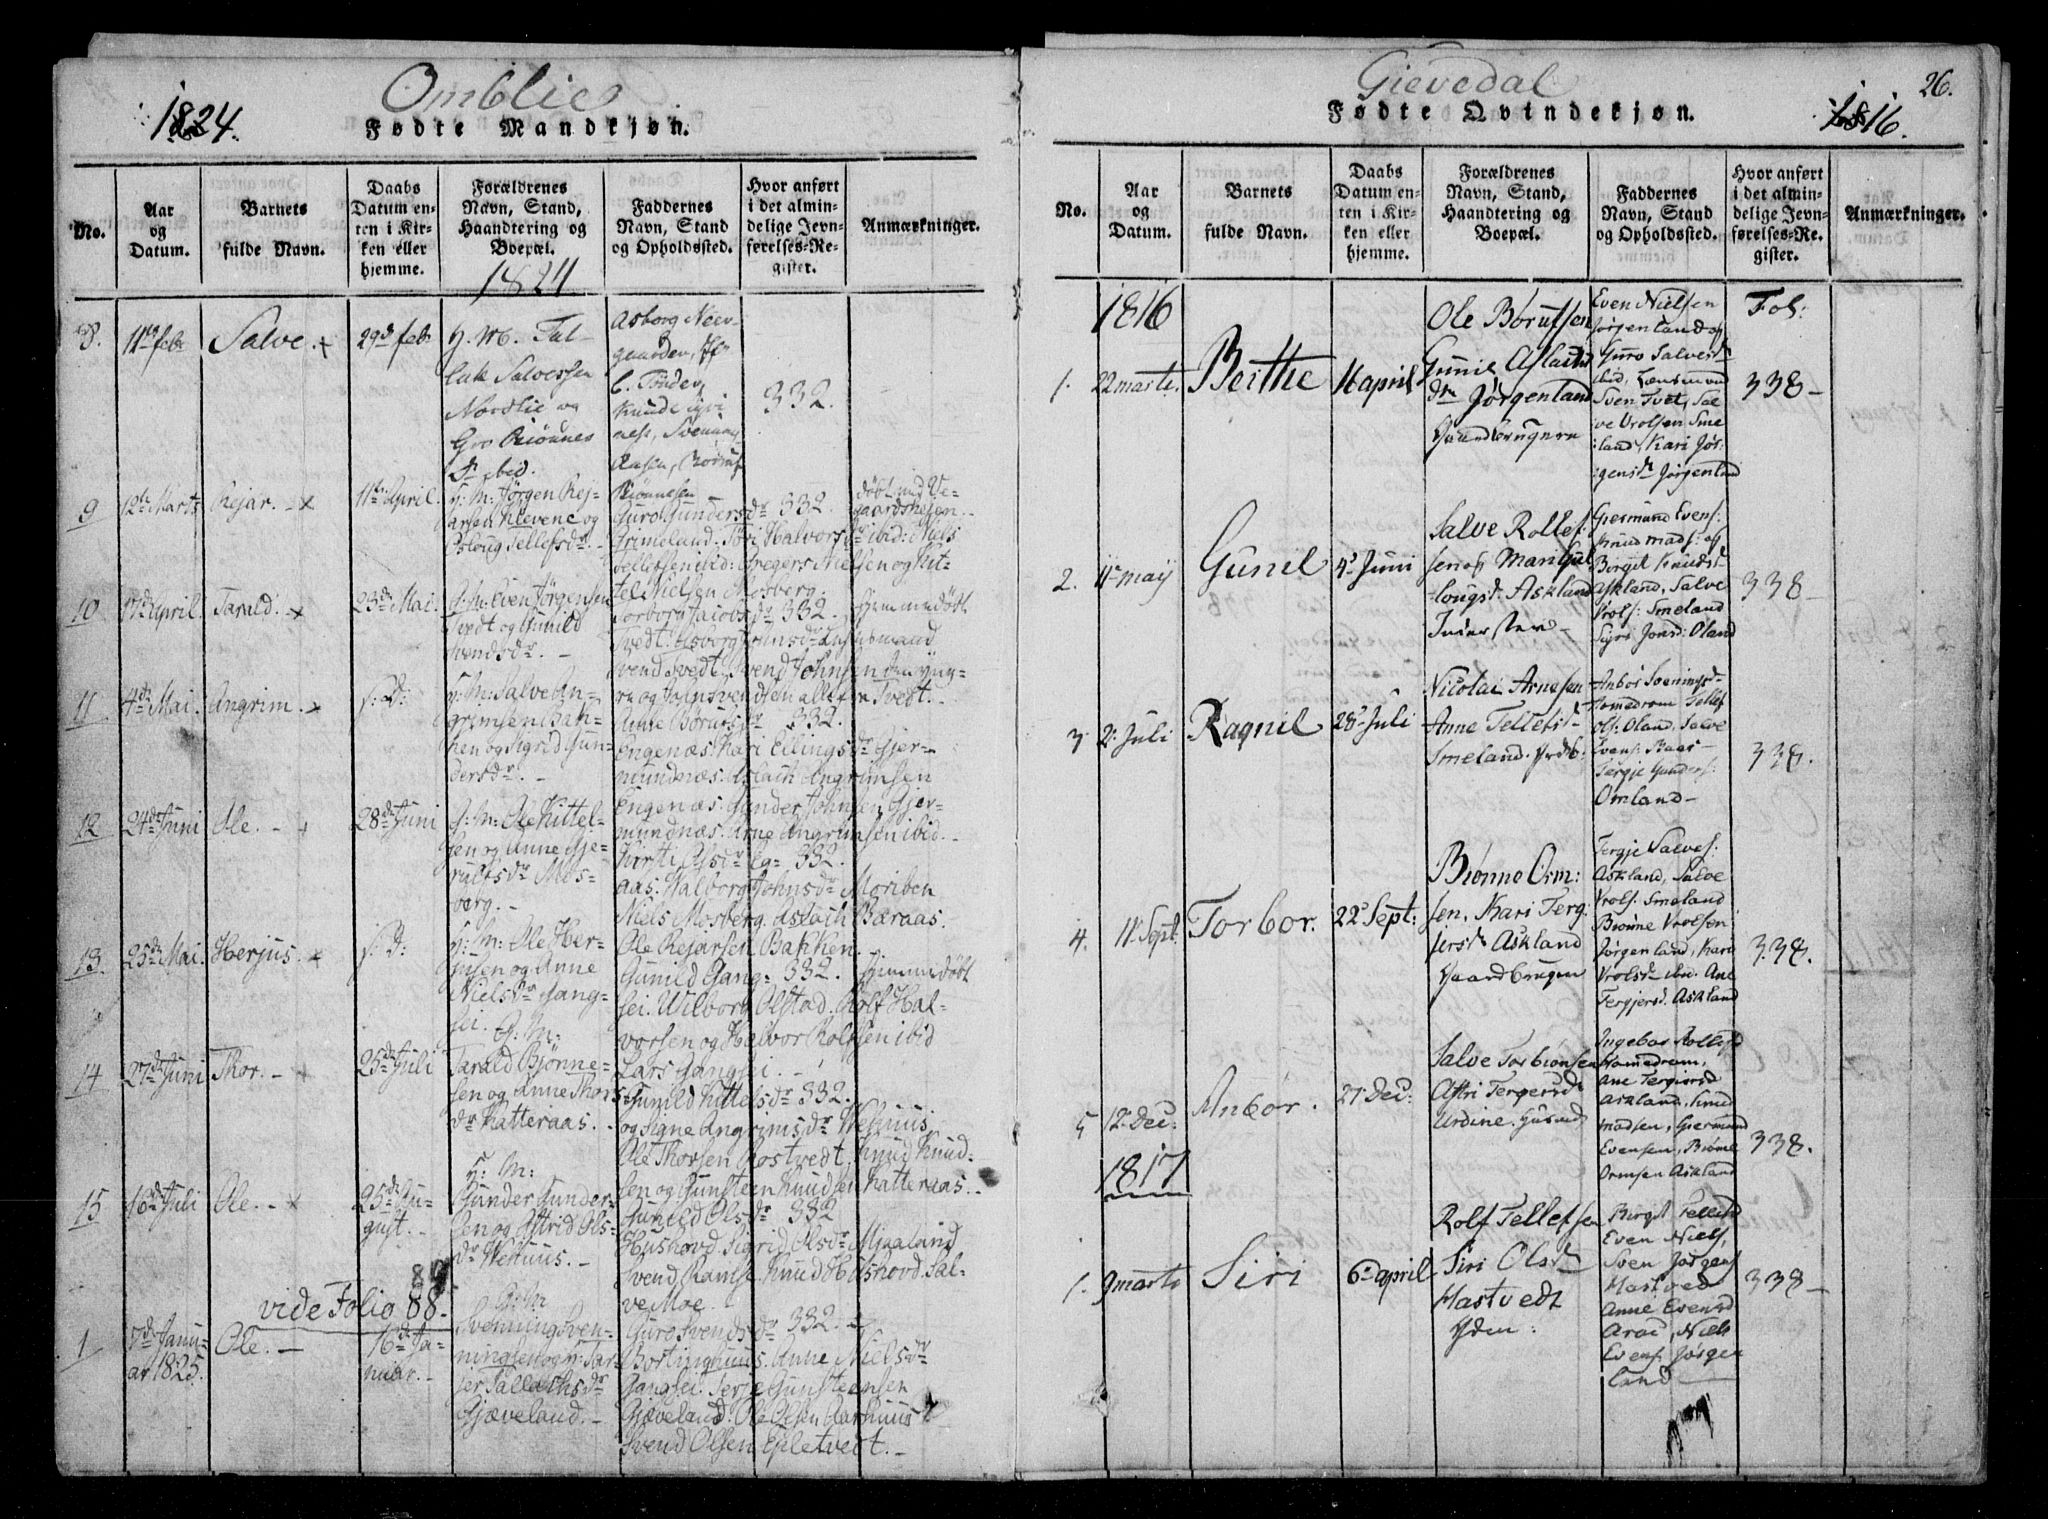 Omblie
1824.
Fødte Mandkjøn.
No.
Aar
og
Datum.
Barnets
fulde Navn.
Daabs
Datum en-
ten i Kir-
ken eller
hjemme.
Forældrenes
Navn, Stand,
Haandtering og
Boepæl.
Faddernes
Navn, Stand
og Opholdssted.
Hvor anført
i det almin-
delige Jevn-
førelses-Re-
gister.
Anmærkninger.
1824
8.
11te febr
Salve
29de feb.
H. M. Tal-
lak Salvessen
Nordlie og
Gro Biönnes
Dr ibid.
Asborg Neer-
gaarden,
Knude
ness,
332.
9
12te Marts
Rejar.
11te April.
H: M: Jørgen Rej-
arsen Klevene og
Tellefsdr.
Guro Gundersdr
Trimeland. Halvorsdr ibid: Niels
Tellefsen ibid: Gregers Nielsen og Kit-
tel Nielsen Mosberg.
332.
døbt ved Ve-
gaardsheien.
10
17de April.
Tarald.
23de Mai.
G: M: Even Jörgensen
Tvedt og Gunild
Svendsdr.
Torborg Jacobsdr
Tvedt. Asborg
Svend Tvedt. Svend Johnsen den yng-
re og John Svendsen alle fra Tvedt.
332.
Hjemmedöbt
11
4de Mai.
Angrim.
s: D:
H: M: Salve An-
grimsen Bak-
ken og Sigrid Gun-
dersdr.
Anne Børufsdr
Engenæs. Kari Eilingsdr Gjer-
mundnæs. Aslach Angrimsen
Engenæs. Gunder Johnsen Gjer-
mundnæs. Arne Angrimsen ibid.
332.
12
24de Juni
Ole.
28de Juni
G: M: Ole Kittel-
sen og Anne Gje-
rulfsdr Mos-
berg.
Kirsti Olsdr Eg-
aas. Walborg Johnsdr Moriben
Niels Mosberg. Aslach Bæraas.
Ole Rejarsen Bakken.
332.
13.
25de Mai.
Herjus.
s: D:
H: M: Ole Her-
jusen og Anne
Nielsdr Gang-
sei.
Gunild Gang-
sei. Wilborg Olstad. Rolf Hal-
vorsen og Halvor Rolfsen ibid
Lars Gangsei.
332.
Hjemmedöbt
14
27de Juni
Thor.
25de Juli
G: M:
Tarald Bjönne-
sen og Anne Thors-
dr Katteraas.
Gunild Kittelsdr
og Signe Angrimsdr Wehuus.
Ole Thorsen Rostvedt. Knud Knud-
sen og Gunsteen Knudsen Katteraas.
332.
15
16de Juli
Ole.
25de Au-
gust.
H: M:
Gunder Gunder-
sen og Astrid Ols-
dr Wehuus.
Gunild Olsdr
Hushovd. Sigrid Olsdr Mjaaland
Svend Ramse. Knud Hushovd. Sal-
ve Moe.
332
vide Folio 88.
89
1
7de Janu-
ar 1825.
Ole.
16de Ja-
nuar.
G: M:
Svenning Sven-
ningsen og Tar-
jer Tallachsdr
Gjæveland.
Guro Svendsdr
Bostinghuus. Anne Nielsdr
Gangsei. Terje Gunsteensen
Gjæveland. Ole Olsen Aarhuus
Svend Olsen Epletvedt.
332.
Gievedal
26.
Fødte Qvindekjøn.
1816.
No.
Aar
og
Datum.
Barnets
fulde Navn.
Daabs
Datum en-
ten i Kir-
ken eller
hjemme.
Forældrenes
Navn, Stand,
Haandtering og
Boepæl.
Faddernes
Navn, Stand
og Opholdssted.
Hvor anført
i det almin-
delige Jevn-
førelses-Re-
gister.
Anmærkninger.
1816
Fol:
1.
22 marts.
Berthe
16 april
Ole Børufsen
Gunil Aslaksd
dr Jørgenland
Gaardbrugere
Even Nielsen
Jørgenland og
Guro Salvesdr
ibid, Lensmand
Sven Tvet, Sal-
ve Vrolsen Sme
land, Kari Jør-
gensdr Jørgenland
338
2.
11 may
Gunil
4 Juni
Salve Rollef-
sen og Mari Gul
lougsd: Askland
Inderster
Giermund Evens:
Knud mads: og
Borgit Knudsd
Askland, Salve
Vrols: Smeland
Siri Jonsd: Oland
338
3
2 Juli
Ragnil
28 Juli
Nicolai Arnesen
Anne Tellefsd
Smeland.
Anbor Svenings d
Homedrom Tellef
Ols: Oland, Salve
Evens: Raas
Tergje Gunders:
Omland
338.
4.
11 Sept.
Torbor.
22 Sept:
Biønne Orm:
sen, Kari Terg-
jersd: Askland
Gaardbruger
Tergje Salves:
Askland, Salve
Vrols: Smeland
Biønne Vrolsen
Jørgenland, Kari
Vrolsd ibid. Ane
Tergjersd. Askland
338.
5
12 Dec:
Anbör.
27 Dec:
Salve Torbionsen
Astri Tergersd
Urdine. Husmd
Ingebor Rollefsd
Homedrom,
Ane Tergiersd
Askland, Knud
madsen, Giermund
Evensen, Biønne
Ormsen Askland
338.
1817
1.
9 marts
Siri
6 april
Rolf Tellefsen
Siri Olsd
Hastvedt
Birgit Tellefsd
Even Niels,
Sven Jørgens
Hastvedt
Anne Evensd
Niels
Evens. Jørgen
land
338